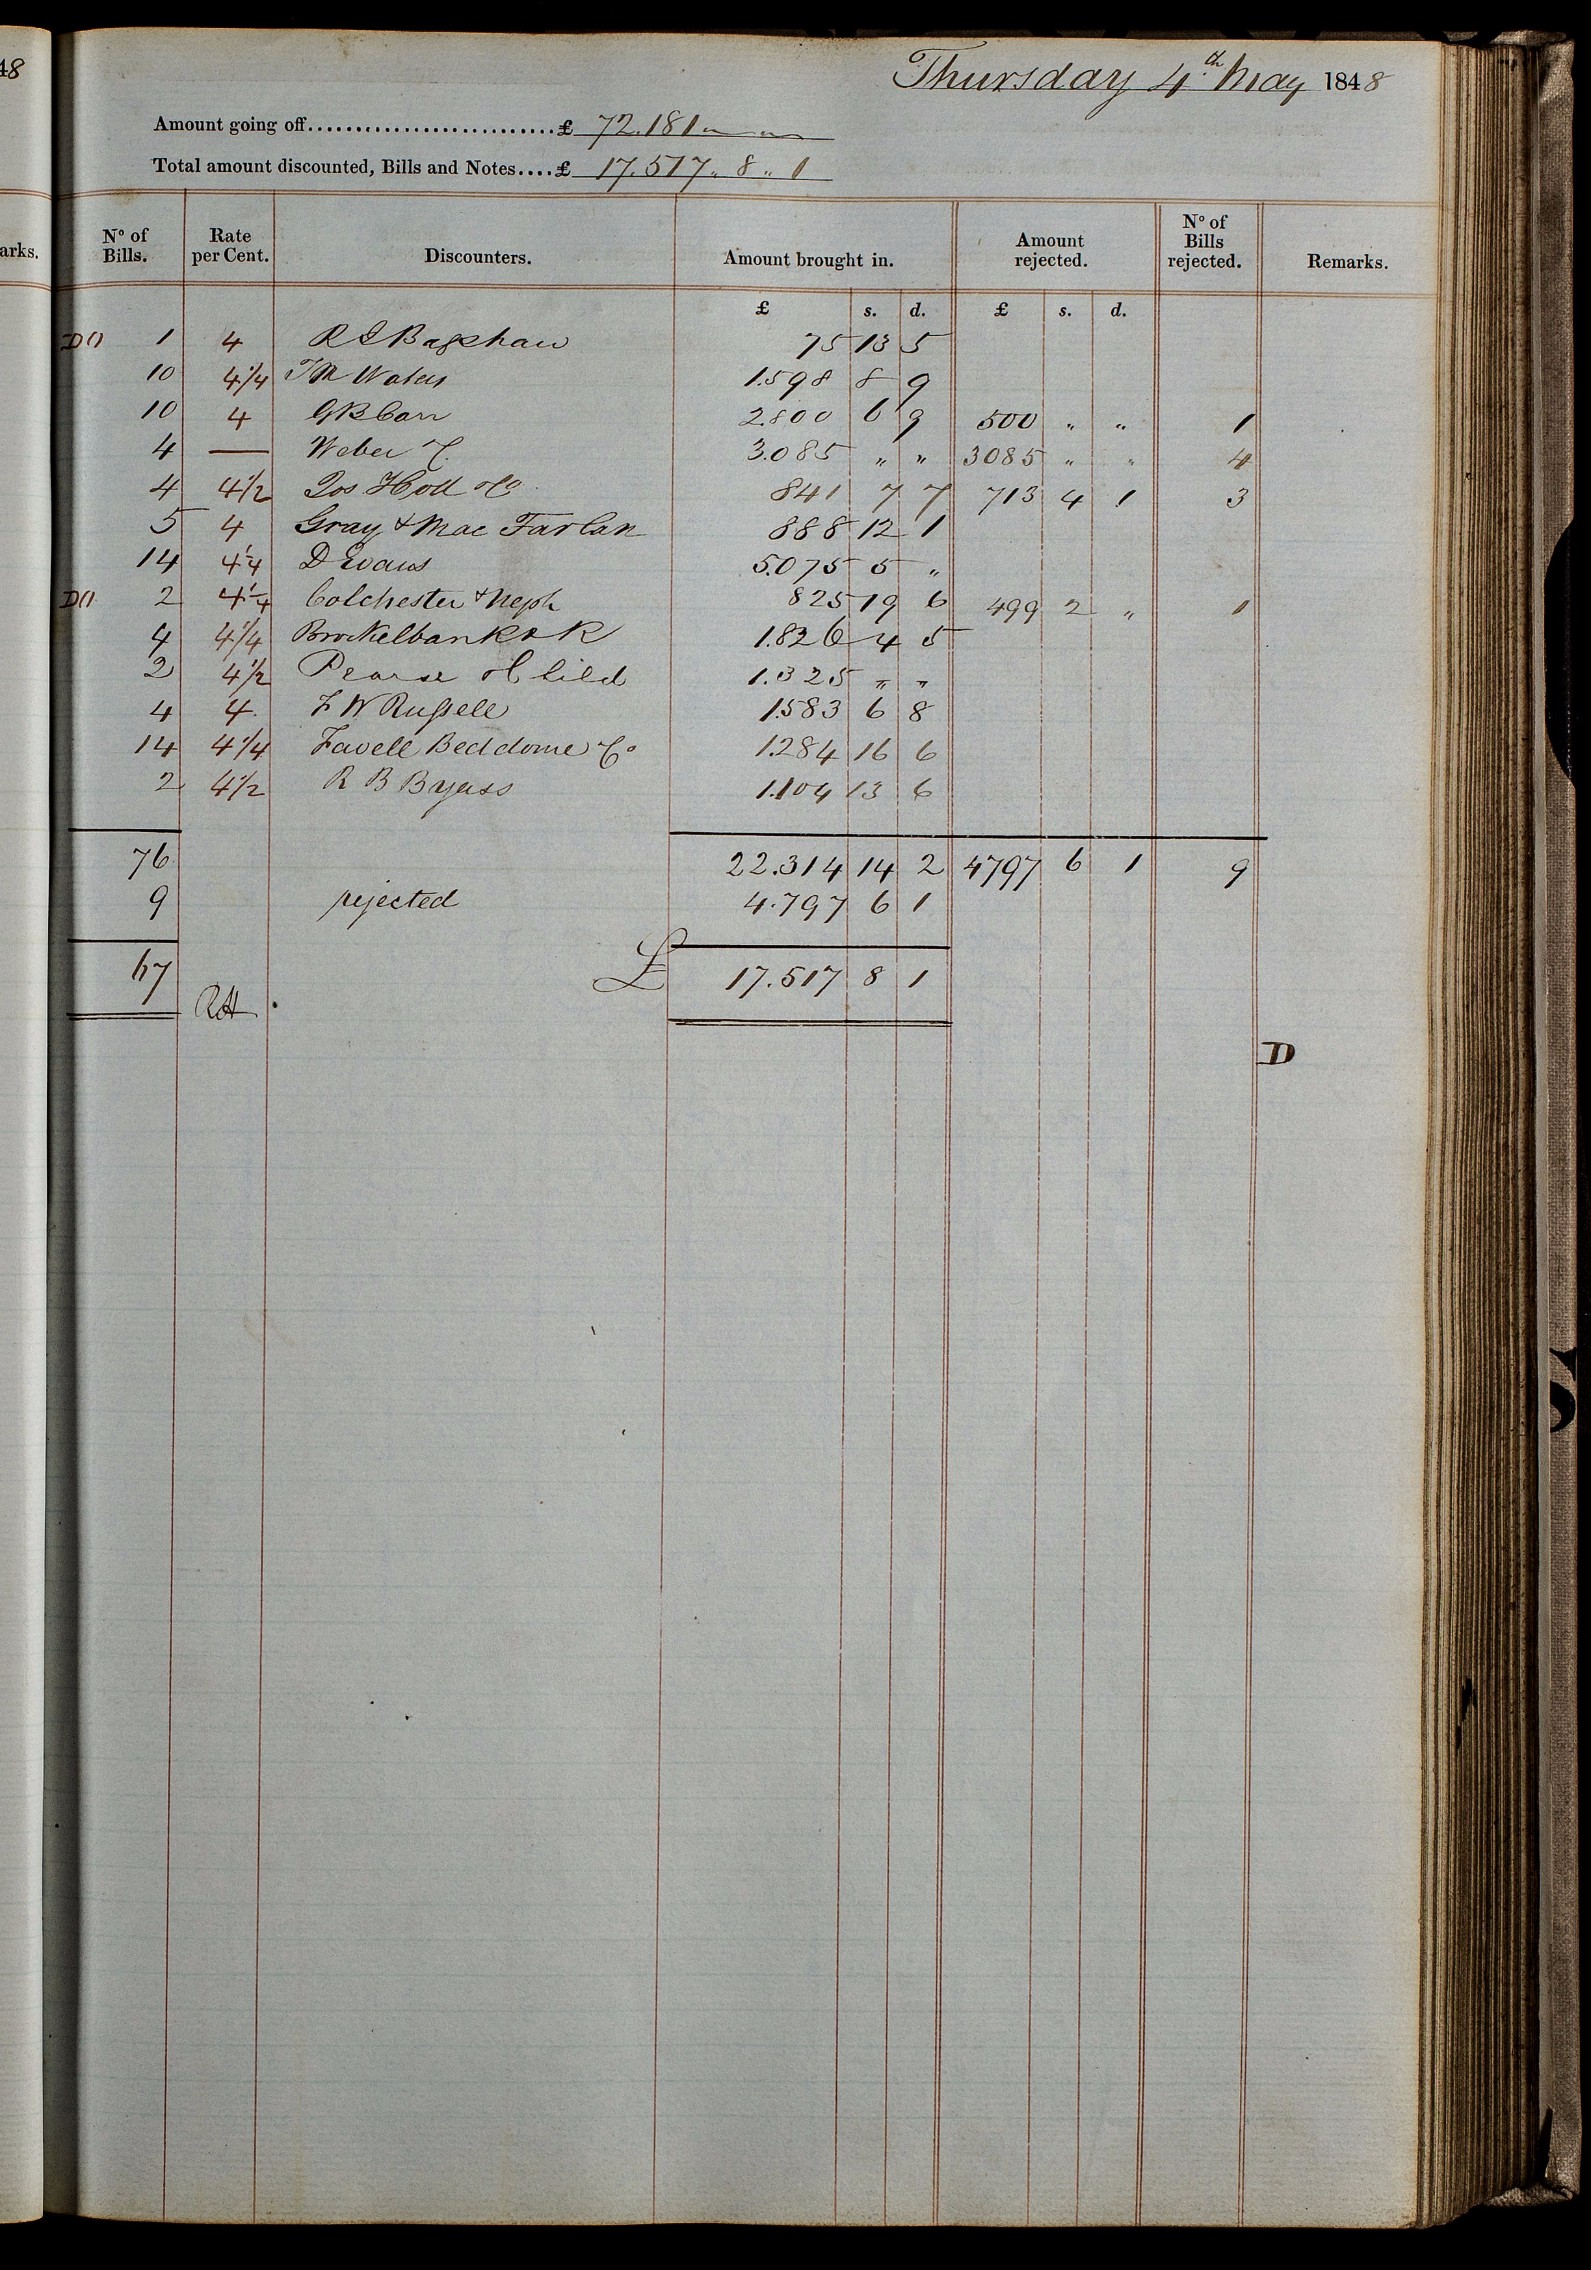 48
Thursday 4th May 1848
Amount going off........................£ 72.181 „ „
Total amount discounted, Bills and Notes....£ 17.517 „ 8 „ 1
arks.
No of Bills. Rate per Cent. Discounters. Amount brought in. Amount rejected. No of Bills rejected. Remarks.
£ s. d. £ s. d.
DO 1 4 R Bagshaw 75 13 5
10 4 1/4 1.598 8 9
10 4 G B Carr 2.800 6 9 500 „ „ 1
4 — Weber & C. 3.085 „ „ 3085 „ „ 4
4 4 1/2 Jos Holl & Co 841 7 7 713 4 1 3
5 4 Gray & Mac Farlan 888 12 1
14 4 1/4 D Evans 5.075 5 „
DO 2 4 1/4 Colchester & Neph 825 19 6 499 2 „ 1
4 4 1/4 Brockelbank & R 1.826 4 5
2 4 1/2 Pearse & Child 1.325 „ „
4 4 F W Russell 1.583 6 8
14 4 1/4 Favell Beddome & Co 1.284 16 6
2 4 1/2 R B Byass 1.104 13 6
76 22.314 14 2 4797 6 1 9
9 rejected 4.797 6 1
67 £ 17.517 8 1
RH
D